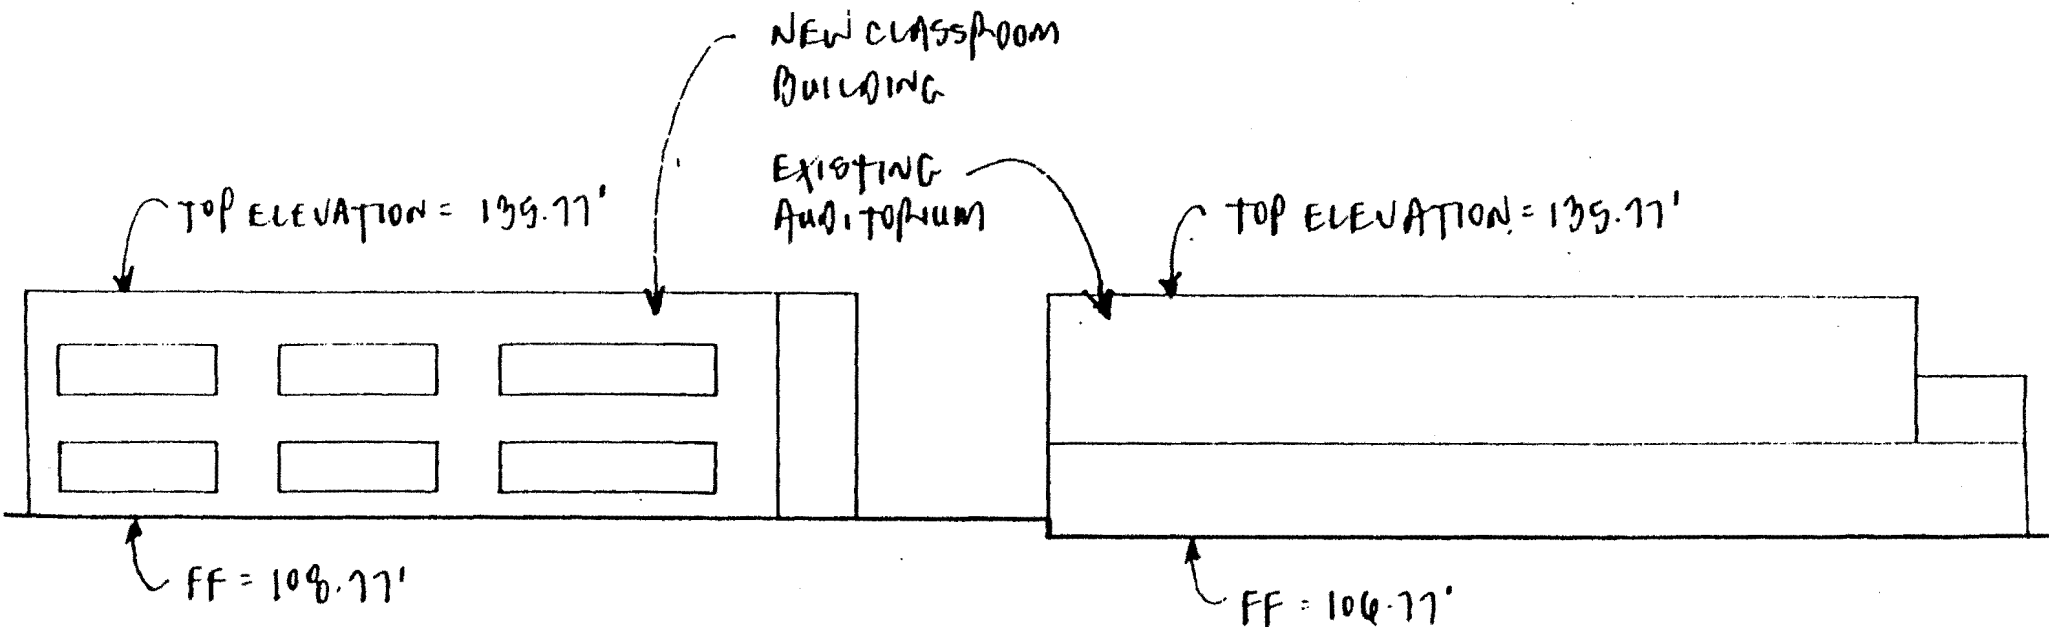 NEW CLASSROOM
BUILDING
EXISTING
AUDITORIUM
TOP ELEVATION = 135.77'
TOP ELEVATION = 135.77'
FF = 108.77'
FF = 106.77'